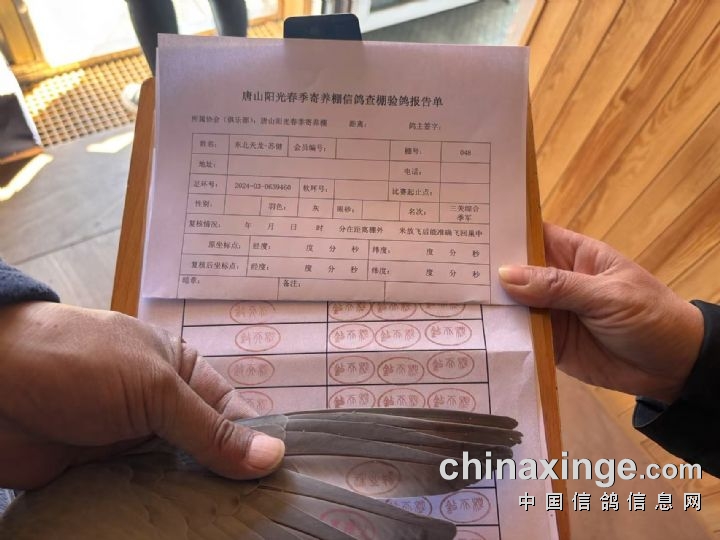 唐山阳光春季寄养棚信鸽查棚验鸽报告单
所属协会(俱乐部): 唐山阳光春季寄养棚 距离: 鸽主签字:
姓名: 东北天龙-苏健 会员编号: 棚号: 048
地址: 电话:
足环号: 2024-03-0639460 软环号: 比赛起止点:
性别: 羽色: 灰 眼砂: 名次: 三关综合
季军
复核情况: 年 月 日 时 分在距离棚外 米放飞后能准确飞回巢中
原坐标点: 经度: 度 分 秒 纬度: 度 分 秒
复核后坐标点: 经度: 度 分 秒 纬度: 度 分 秒
暗章: 备注:
chinaxinge.com
中国信鸽信息网